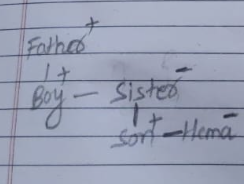 Father +
+
Boy — Sister -
Son + — Hema -